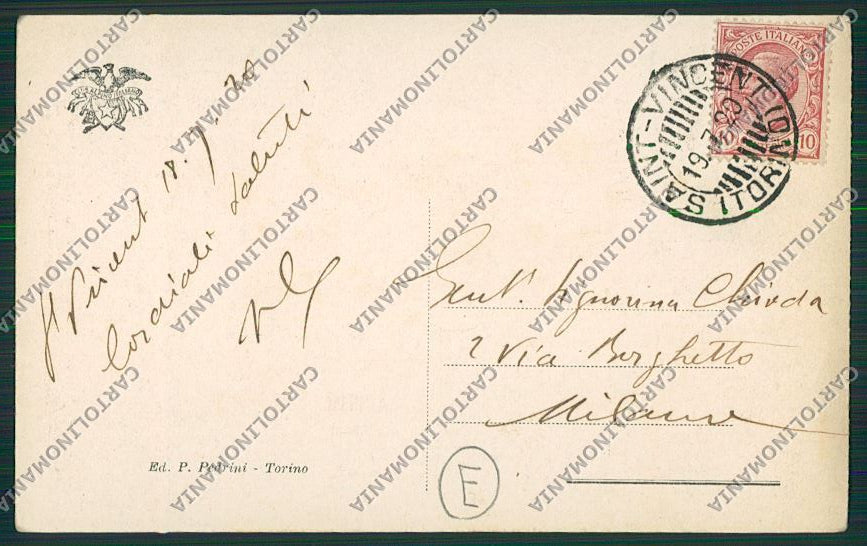 St Vincent 18.7.20
Cordiali Saluti
POSTE ITALIANE
10
SAINT-VINCENT (TORINO)
19.7.20
Gent. Signorina Chioda
2 Via Borghetto
Milano
Ed. P. Pedrini - Torino
E
CARTOLINOMANIA